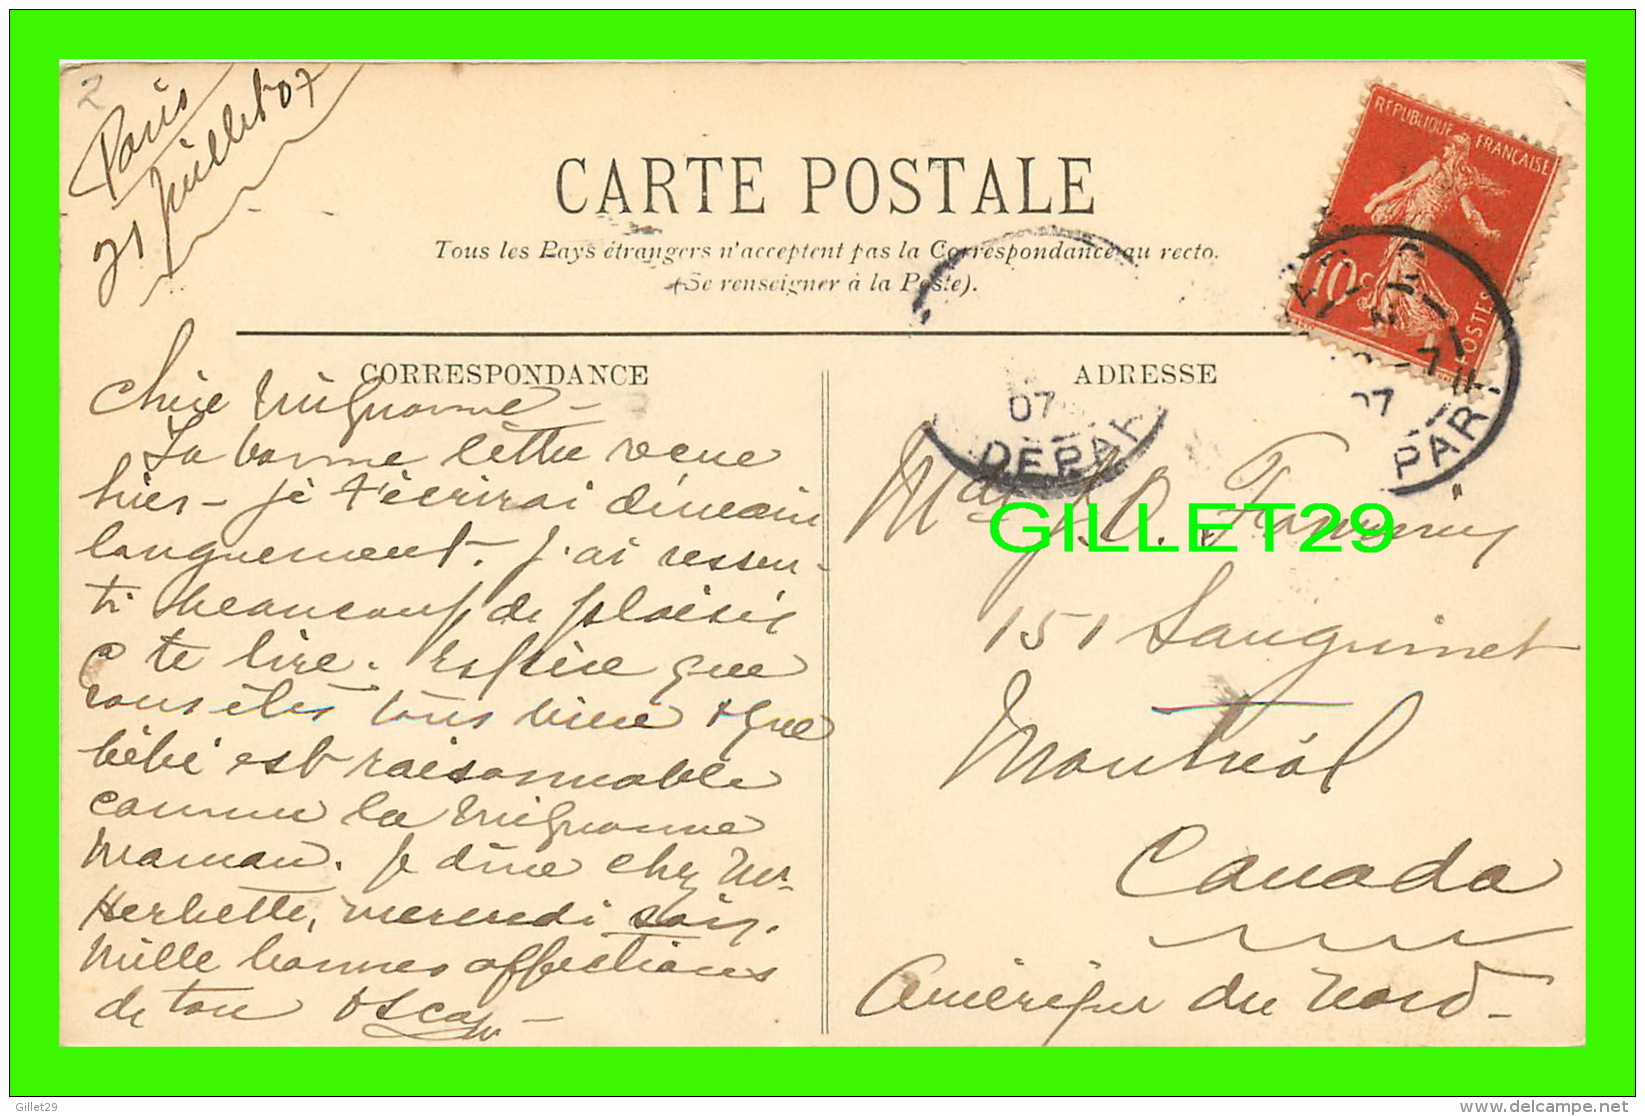 2
Paris
21 juillet 07
CARTE POSTALE
Tous les Pays étrangers n'acceptent pas la Correspondance au recto.
(Se renseigner à la Poste).
REPUBLIQUE FRANÇAISE
10c
POSTES
CORRESPONDANCE
ADRESSE
07
DEPAR
07
PAR
Chère Mignonne –
Ta bonne lettre reçue
hier – je t'écrirai demain
longuement. J'ai ressen-
ti beaucoup de plaisir
à te lire. Espère que
vous êtes tous bien & que
bébé est raisonnable
comme la mignonne
maman. Je dîne chez Mr
Herbette, mercredi soir.
Mille bonnes affections
de ton Oscar –
GILLET29
J. O.
151 Sanguinet
Montréal
Canada
Amérique du Nord –
Gillet29
delcampe.net